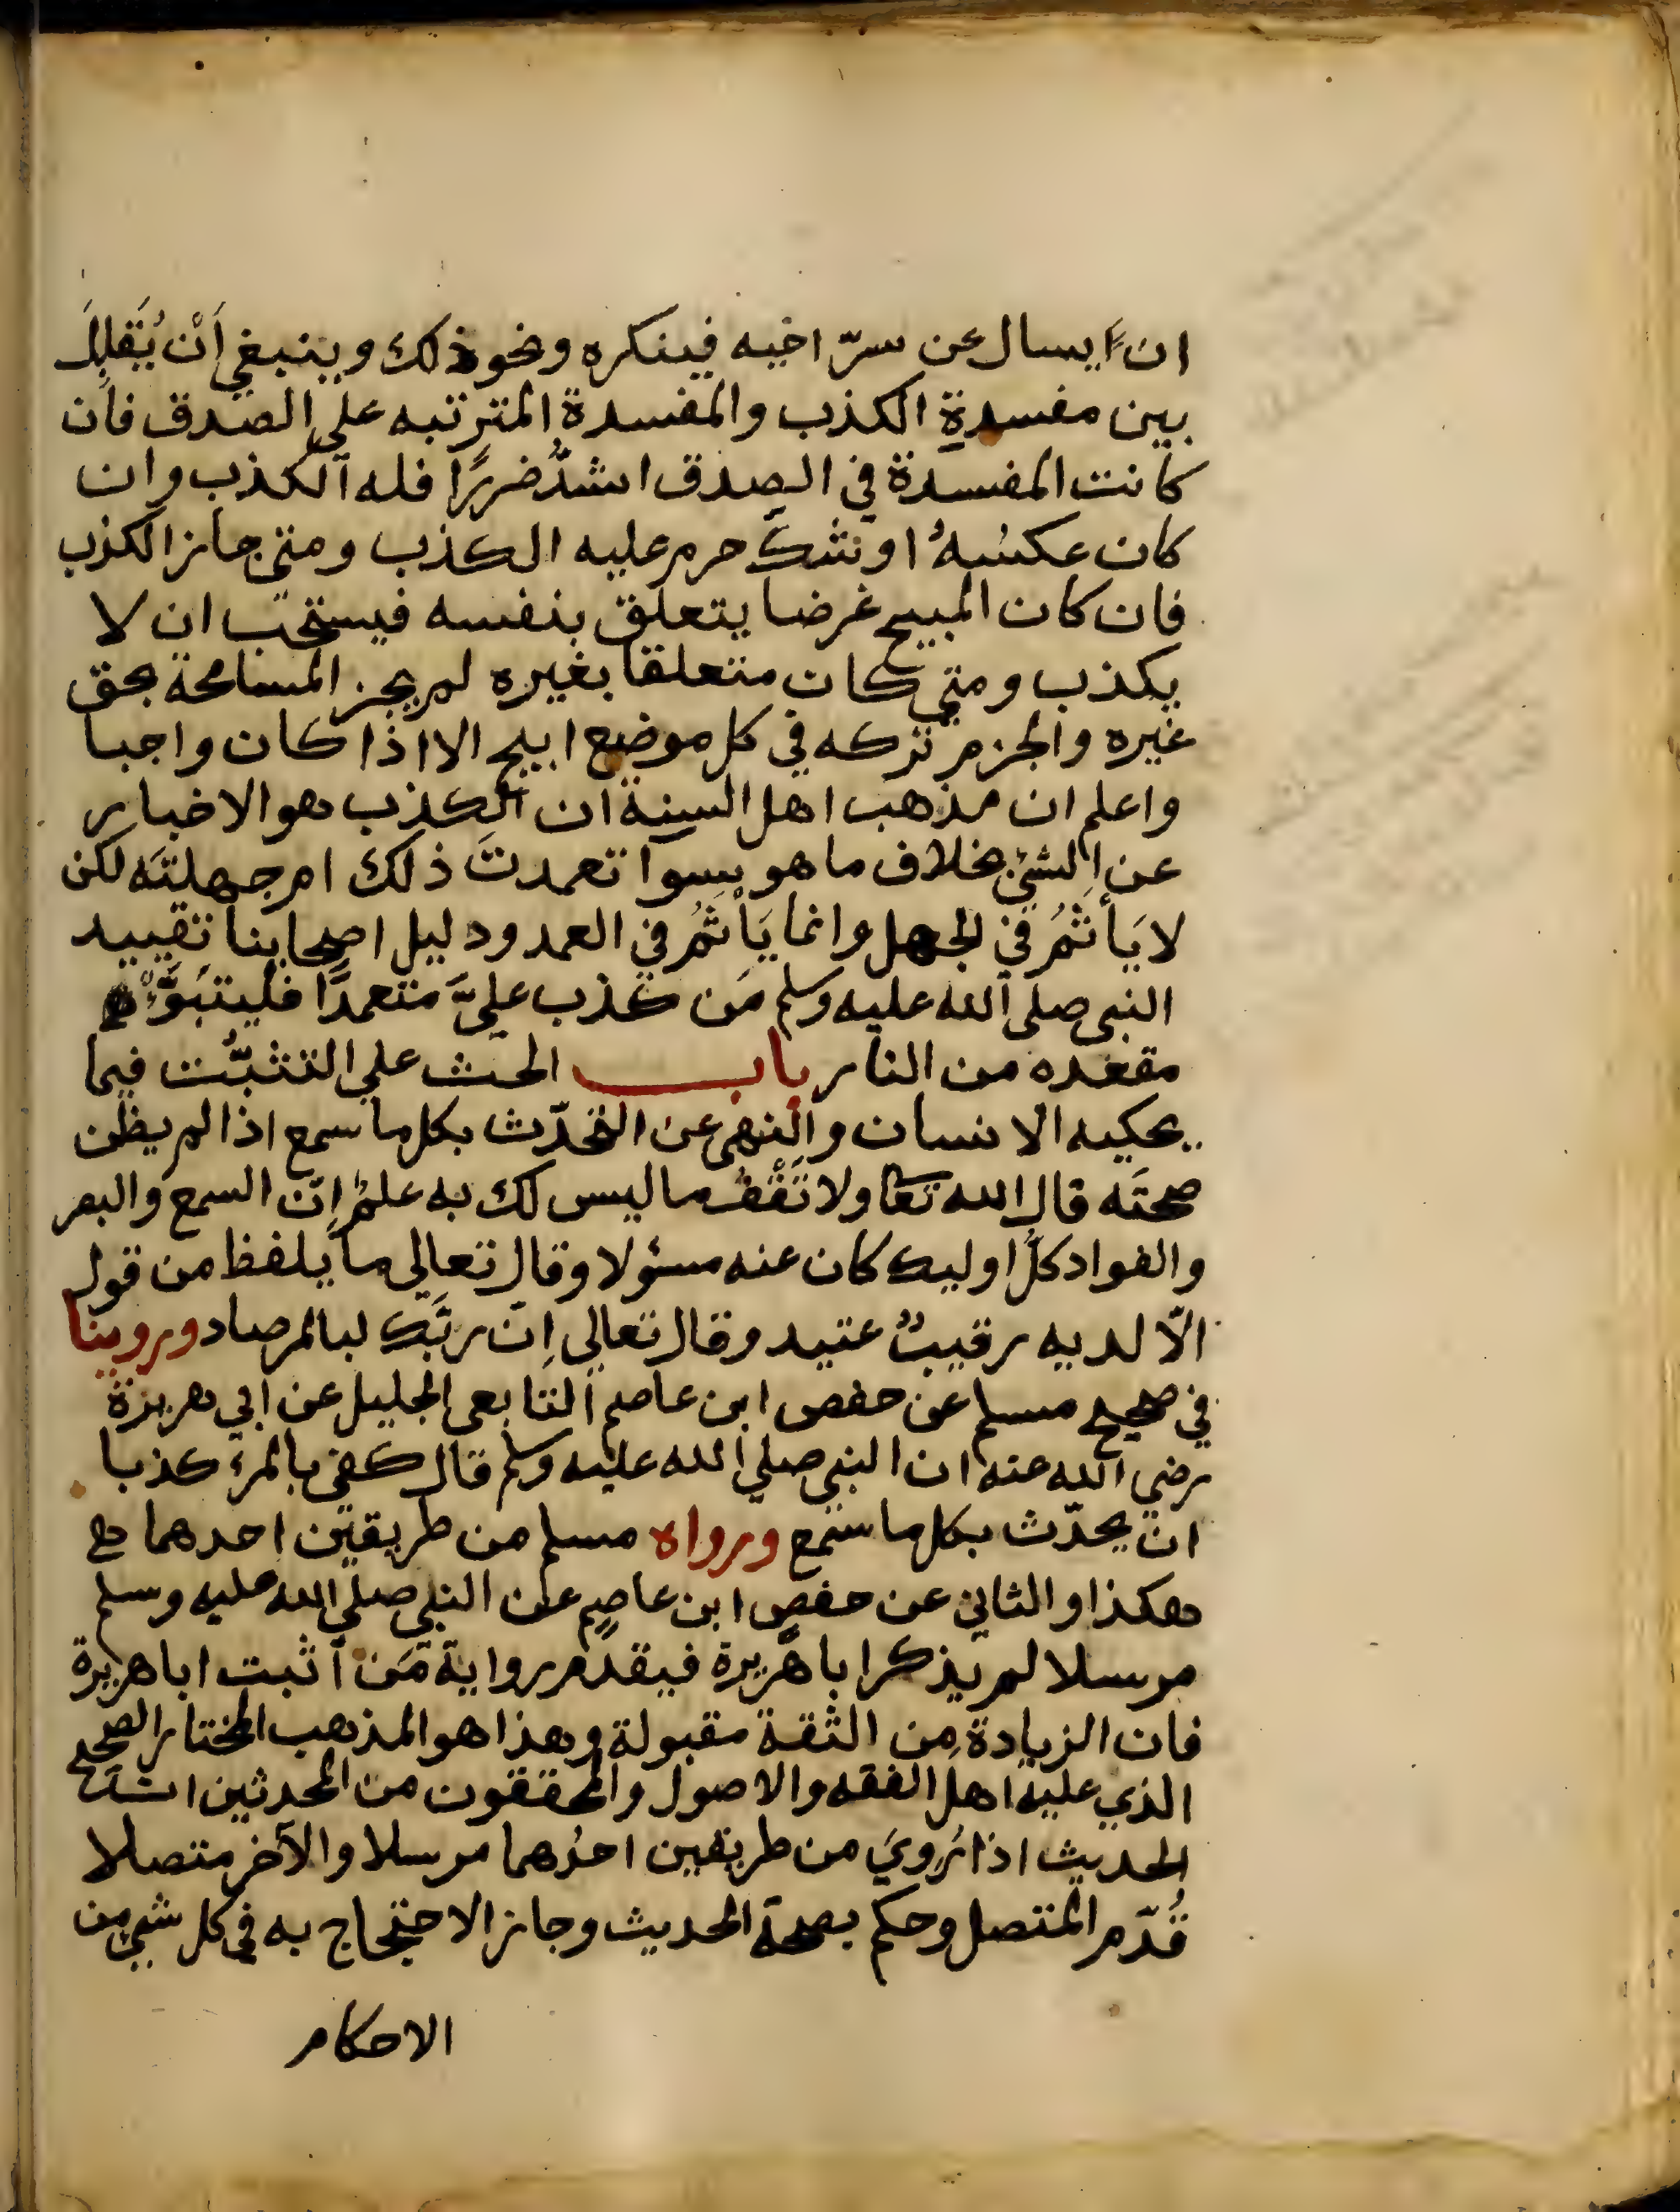 ان يسال عن سرّ اخيه فينكره ونحو ذلك وينبغي أَنْ يُقَابِلَ
بين مفسدةِ الكذب والمفسدة المترتبه علي الصدق فان
كانت المفسدة في الصدق اشدُّ ضررًا فله الكذب وان
كان عكسُهُ او شكَّ حرم عليه الكذب ومتي جاز الكذب
فان كان المبيح غرضا يتعلق بنفسه فيستحَبّ ان لا
يكذب ومتي كان متعلقا بغيره لم يجز المسامحة بحق
غيره والجزم تركه في كل موضع ابيح الا اذا كان واجبا
واعلم ان مذهب اهل السنة ان الكذب هو الاخبار
عن الشئ بخلاف ما هو سوا تعمدتَ ذلك ام جهلتَه لكن
لا يَأثَمُ في الجهل وانما يَأثَمُ في العمد ودليل اصحابنا تقييد
النبي صلي الله عليه وسلم مَن كذب عليَّ متعمدًا فليتبَوَّأْ
مقعده من النار باب الحث علي التثبُّت فيما
يحكيه الانسان والنهي عن التحدّث بكل ما سمع اذا لم يظن
صحتَه قال الله تعا ولا تَقْفُ ما ليس لك به علمٌ اِنّ السمع والبصر
والفواد كلُّ اوليك كان عنه مسؤلا وقال تعالي ما يلفظ من قول
الّا لديه رقيبٌ عتيد وقال تعالي اِنّ ربَّك لبالمرصاد وروينا
في صحيح مسلم عن حفص ابن عاصم التابعي الجليل عن ابي هريرة
رضي الله عنه ان النبي صلي الله عليه وسلم قال كفي بالمرء كذبا
ان يحدّث بكل ما سمع ورواه مسلم من طريقين احدهما
هكذا والثاني عن حفصِ ابن عاصِمٍ عن النبي صلي الله عليه وسلم
مرسلا لم يذكر ابا هريرة فيقدم رواية مَن اثبت ابا هريرة
فان الزيادة مِن الثقة مقبولة وهذا هو المذهب المختار الصحيح
الذي عليه اهل الفقه والاصول والمحققون من المحدثين ان
الحديث اذا رُويَ من طريقين احدُهما مرسلا والآخر متصلا
قُدّم المتصل وحكم بصحة الحديث وجاز الاحتجاج به في كل شئ من
الاحكام